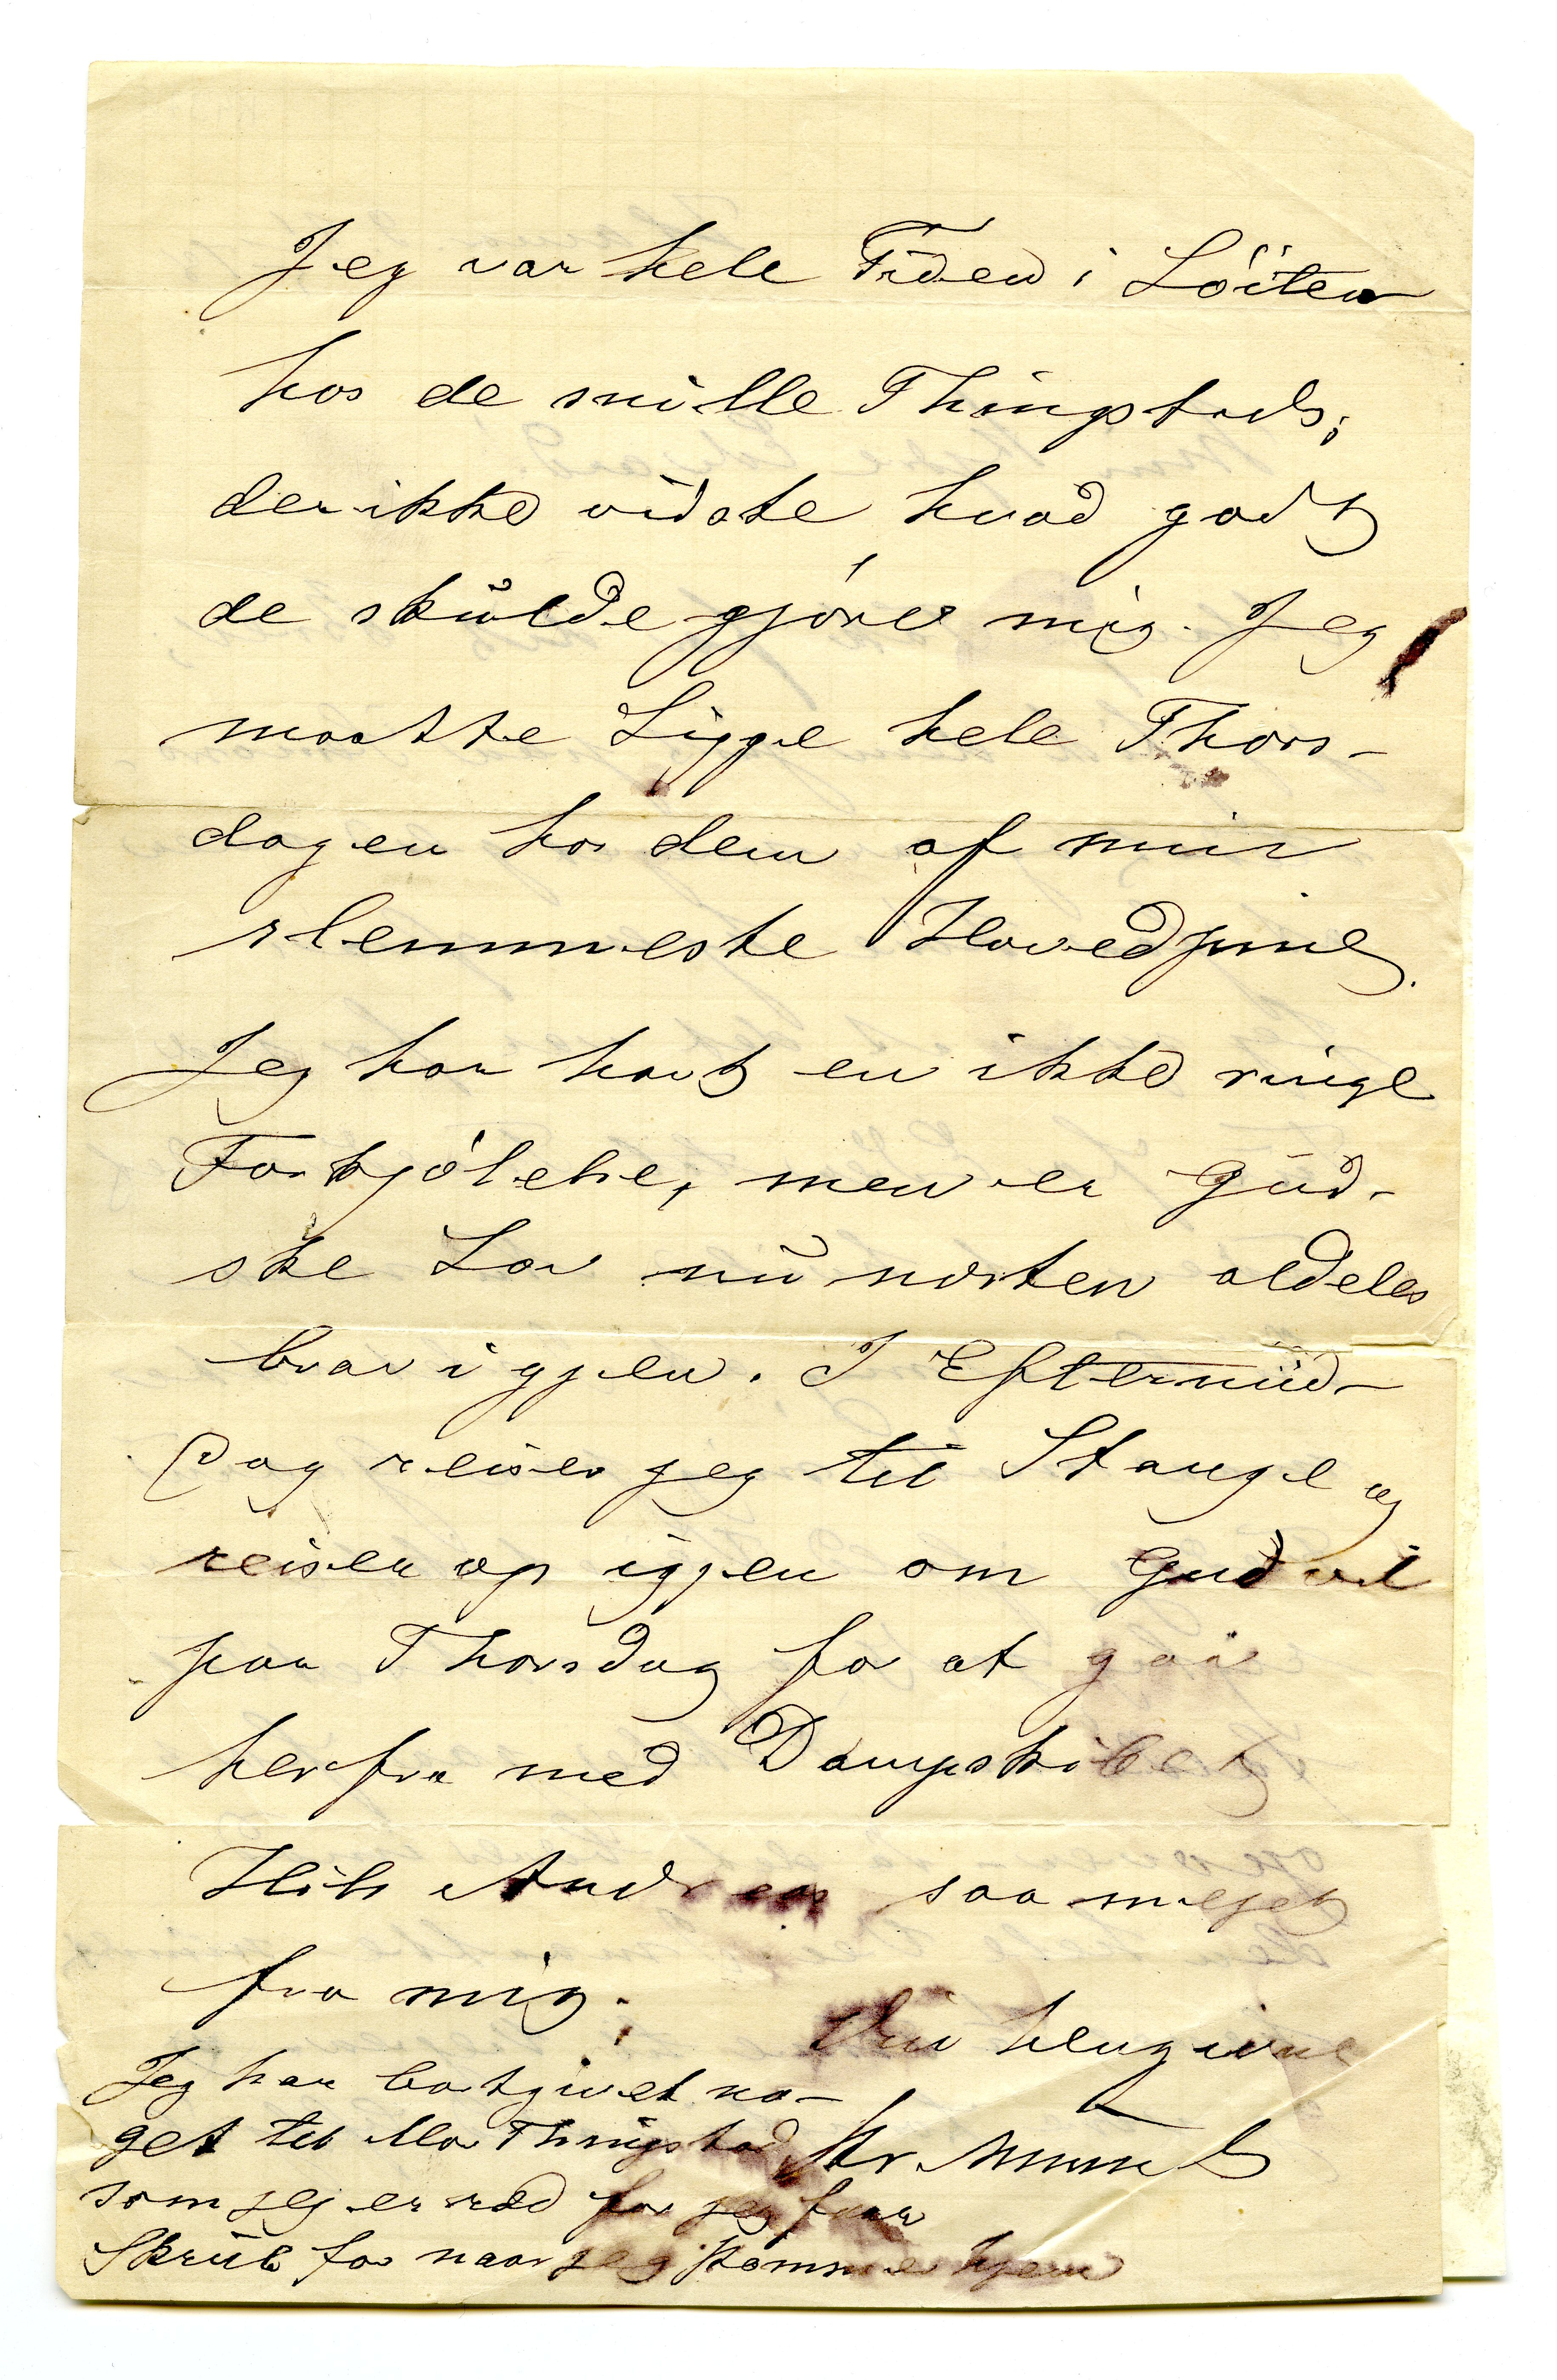 Jeg var hele Tiden i Löiten
hos de snille Thingstads;
der ikke vidste hvad godt
de skulde gjöre mig. Jeg
maatte Ligge hele Thors-
dagen hos dem af min
slemmeste Hovedpine.
Jeg har havt en ikke ringe
Forkjölelse, men er Gud-
ske Lov nu næsten aldeles
bra igjen. I Eftermid-
dag reiser jeg til Stange og
reiser op igjen om Gud vil
paa Thorsdag for at gaa
herfra med Dampskibet
Hils Andreas saa meget
fra mig.
Din hengivne
Chr. Munch
Jeg har bortgivet no-
get til Mor Thingstad
som jeg er ræd for jeg faar
Skrub for naar jeg kommer hjem